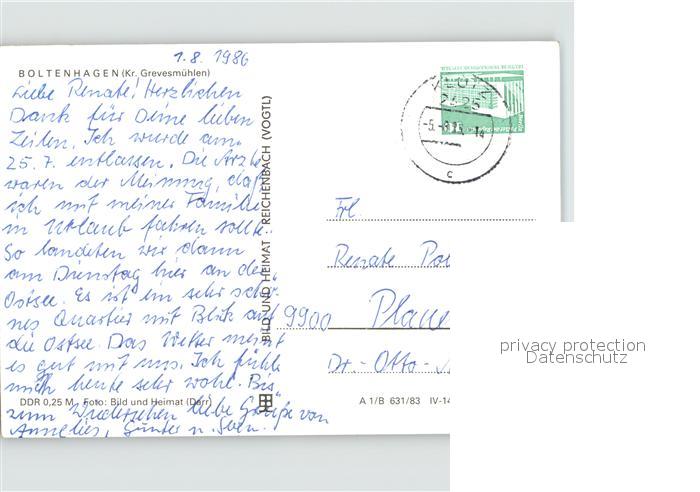 1.8. 1986
BOLTENHAGEN (Kr. Grevesmühlen)
Liebe Renate! Herzlichen
Dank für Deine lieben
Zeilen. Ich wurde am
25.7. entlassen. Die Ärzte
waren der Meinung, daß
ich mit meiner Familie
in Urlaub fahren sollte.
So landeten wir dann
am Dienstag hier an der
Ostsee. Es ist ein sehr schö-
nes Quartier mit Blick auf
die Ostsee. Das Wetter meint
es gut mit uns. Ich fühle
mich heute sehr wohl. Bis
zum Wiedersehen liebe Grüße von
Annelies, Günter u. Sven.
DDR 0,25 M · Foto: Bild und Heimat (Darr)
BILD UND HEIMAT REICHENBACH (VOGTL)
KLÜTZ
2425
-5.-8.86 14
c
Frl.
Renate
9900 Plaue
Dr.-Otto-
A 1/B 631/83 IV-14
privacy protection
Datenschutz